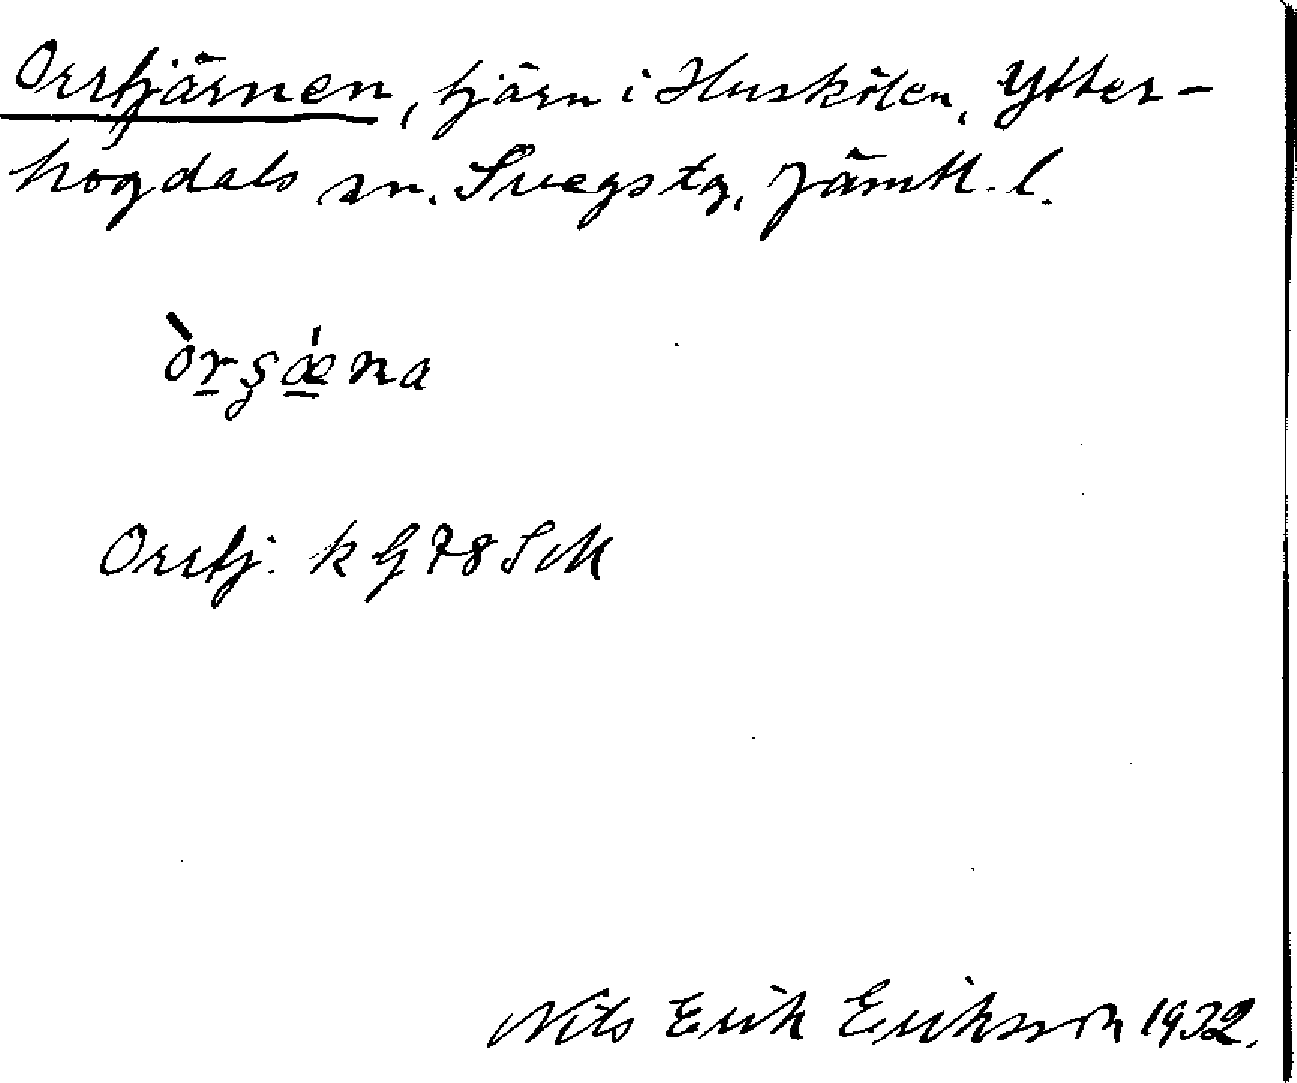 Orrtjärnen, tjärn i Huskölen, Ytter-
hogdals sn. Svegs tg, Jämtl. l.
òr̲şǽ̲na
Orrtj. k G 78 SvM
Nils Erik Eriksson 1932.